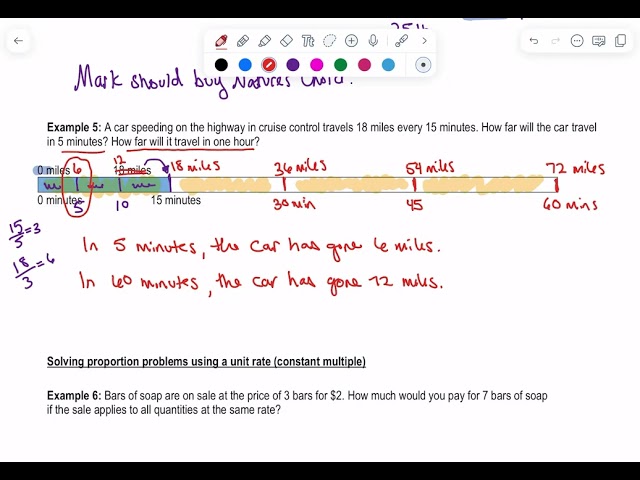 Mark should buy Nature's Choice.
Example 5: A car speeding on the highway in cruise control travels 18 miles every 15 minutes. How far will the car travel
in 5 minutes? How far will it travel in one hour?
0 miles 6 12 18 miles 18 miles 36 miles 54 miles 72 miles
0 minutes 5 10 15 minutes 30 min 45 60 mins
15/5 = 3
In 5 minutes, the car has gone 6 miles.
18/3 = 6
In 60 minutes, the car has gone 72 miles.
Solving proportion problems using a unit rate (constant multiple)
Example 6: Bars of soap are on sale at the price of 3 bars for $2. How much would you pay for 7 bars of soap
if the sale applies to all quantities at the same rate?